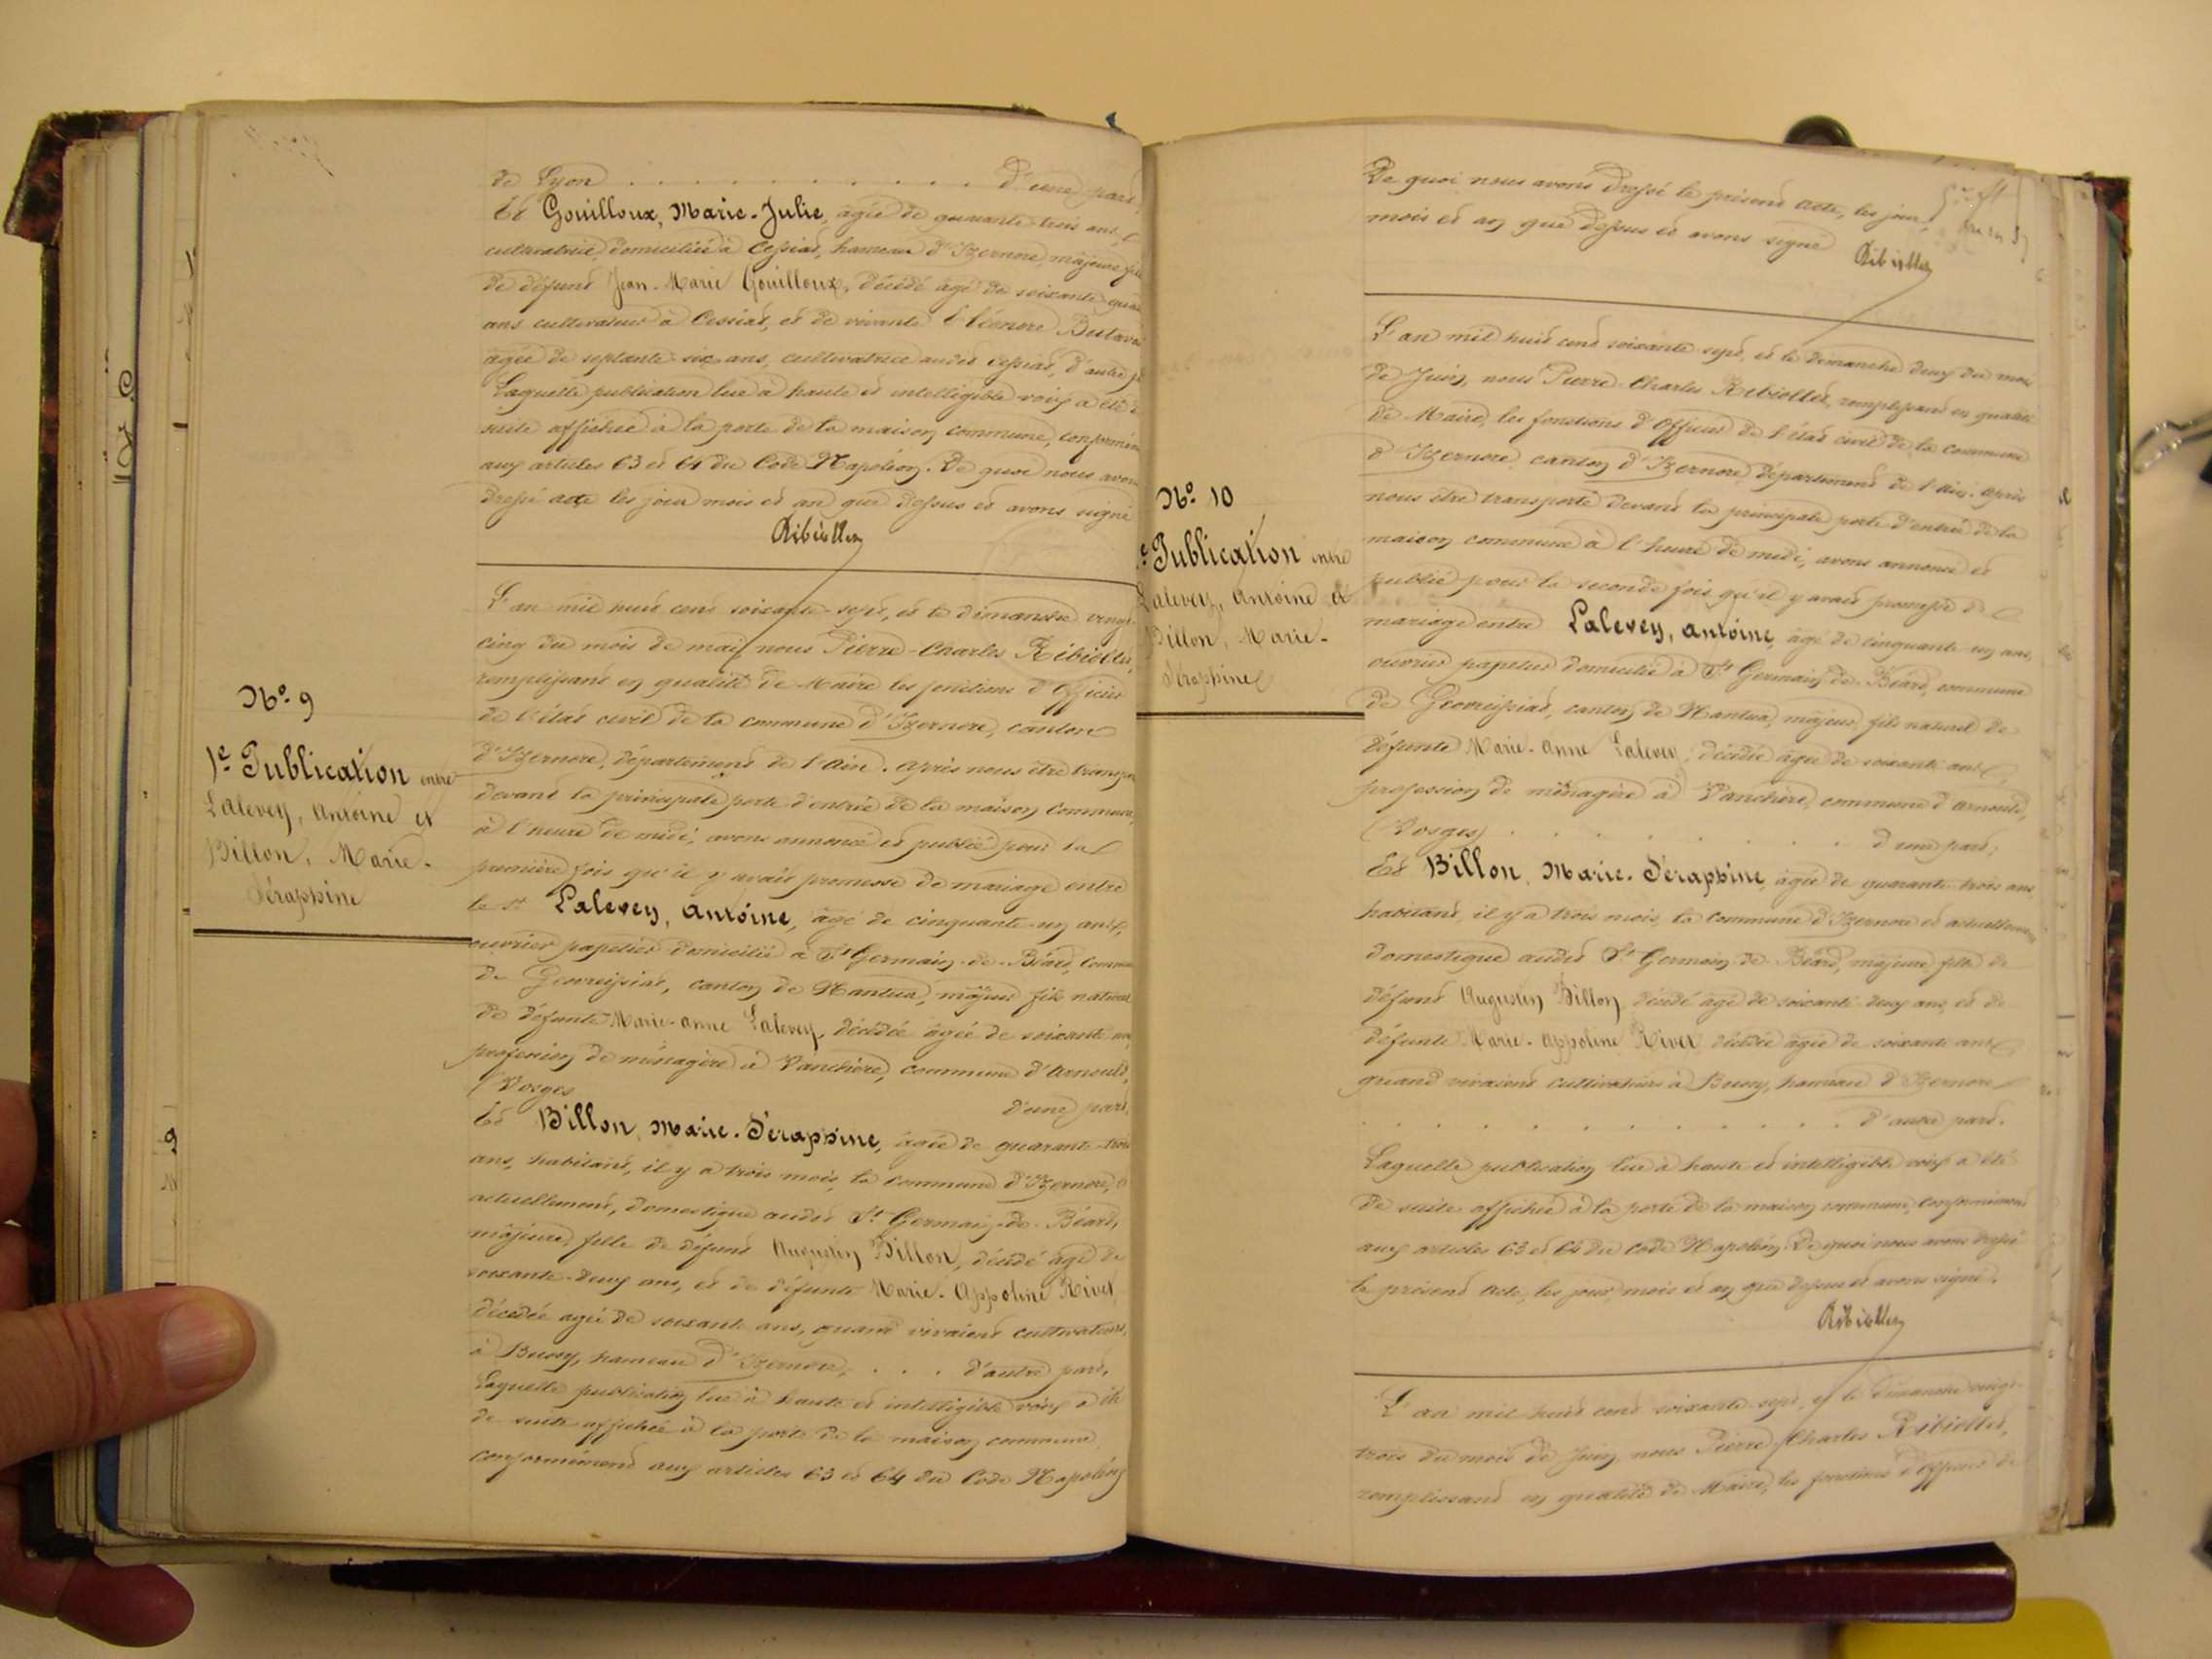 de Lyon . . . . . . . . . . . . d'une part,
Et Gouilloux, Marie-Julie, âgée de quarante-trois ans,
cultivatrice, domiciliée à Cessiat, hameau d'Izernore, majeure, fille
de défunt Jean-Marie Gouilloux, décédé âgé de soixante
ans cultivateur à Cessiat, et de vivante Eléonore
âgée de septante-six ans, cultivatrice audit Cessiat, d'autre
Laquelle publication lue à haute et intelligible voix a été
suite affichée à la porte de la maison commune,
aux articles 63 et 64 du Code Napoléon. De quoi nous avons
dressé acte les jour mois et an que dessus et avons signé
Ribiollet
N° 9
1e Publication entre
Lalevey, Antoine et
Billon, Marie-
Séraphine
L'an mil huit cent soixante-sept, et le dimanche vingt-
cinq du mois de mai, nous Pierre-Charles Ribiollet,
remplissant en qualité de Maire les fonctions d'Officier
de l'état civil de la commune d'Izernore, canton
d'Izernore, département de l'Ain. Après nous être
devant la principale porte d'entrée de la maison commune,
à l'heure de midi, avons annoncé et publié pour la
première fois qu'il y avait promesse de mariage entre
le sr Lalevey, Antoine, âgé de cinquante-un ans,
ouvrier papetier domicilié à St Germain-de-Béard, commune
de Geovreissiat, canton de Nantua, majeur, fils naturel
de défunte Marie-Anne Lalevey, décédée âgée de soixante ans,
profession de ménagère à Vanchère, commune d'Arnould,
(Vosges d'une part,
Et Billon, Marie-Séraphine, âgée de quarante-trois
ans, habitant, il y a trois mois, la commune d'Izernore, et
actuellement, domestique audit St Germain-de-Béard,
majeure, fille de défunt Augustin Billon, décédé âgé de
soixante-deux ans, et de défunte Marie-Appoline Rivet
décédée âgée de soixante ans, quand vivaient cultivateurs,
à Bussy, hameau d'Izernore, . . . d'autre part,
Laquelle publication lue à haute et intelligible voix a été
de suite affichée à la porte de la maison commune,
conformément aux articles 63 et 64 du Code Napoléon
De quoi nous avons dressé le présent acte, les jour,
mois et an que dessus et avons signé
Ribiollet
N° 10
e Publication entre
Lalevey, Antoine et
Billon, Marie-
Séraphine
L'an mil huit cent soixante sept, et le dimanche deux du mois
de Juin, nous Pierre-Charles Ribiollet, remplissant en qualité
de Maire, les fonctions d'Officier de l'état civil de la commune
d'Izernore, canton d'Izernore, département de l'Ain. Après
nous être transporté devant la principale porte d'entrée de la
maison commune à l'heure de midi, avons annoncé et
publié pour la seconde fois qu'il y avait promesse de
mariage entre Lalevey, Antoine, âgé de cinquante-un ans,
ouvrier papetier domicilié à St Germain-de-Béard, commune
de Geovreissiat, canton de Nantua, majeur, fils naturel de
défunte Marie-Anne Lalevey, décédée âgée de soixante ans,
profession de ménagère à Vanchère, commune d'Arnould,
(Vosges) . . . . . . . d'une part;
Et Billon, Marie-Séraphine, âgée de quarante-trois ans,
habitant, il y a trois mois, la commune d'Izernore et actuellement
domestique audit St Germain-de-Béard, majeure, fille de
défunt Augustin Billon, décédé âgé de soixante-deux ans, et de
défunte Marie-Appoline Rivet, décédée âgée de soixante ans
quand vivaient cultivateurs à Bussy, hameau d'Izernore
. . . . . . . . . . . . d'autre part.
Laquelle publication lue à haute et intelligible voix a été
de suite affichée à la porte de la maison commune, conformément
aux articles 63 et 64 du Code Napoléon. De quoi nous avons dressé
le présent acte, les jour, mois et an que dessus et avons signé.
Ribiollet
L'an mil huit cent soixante-sept, et le dimanche vingt-
trois du mois de Juin, nous Pierre-Charles Ribiollet,
remplissant en qualité de Maire, les fonctions d'Officier de